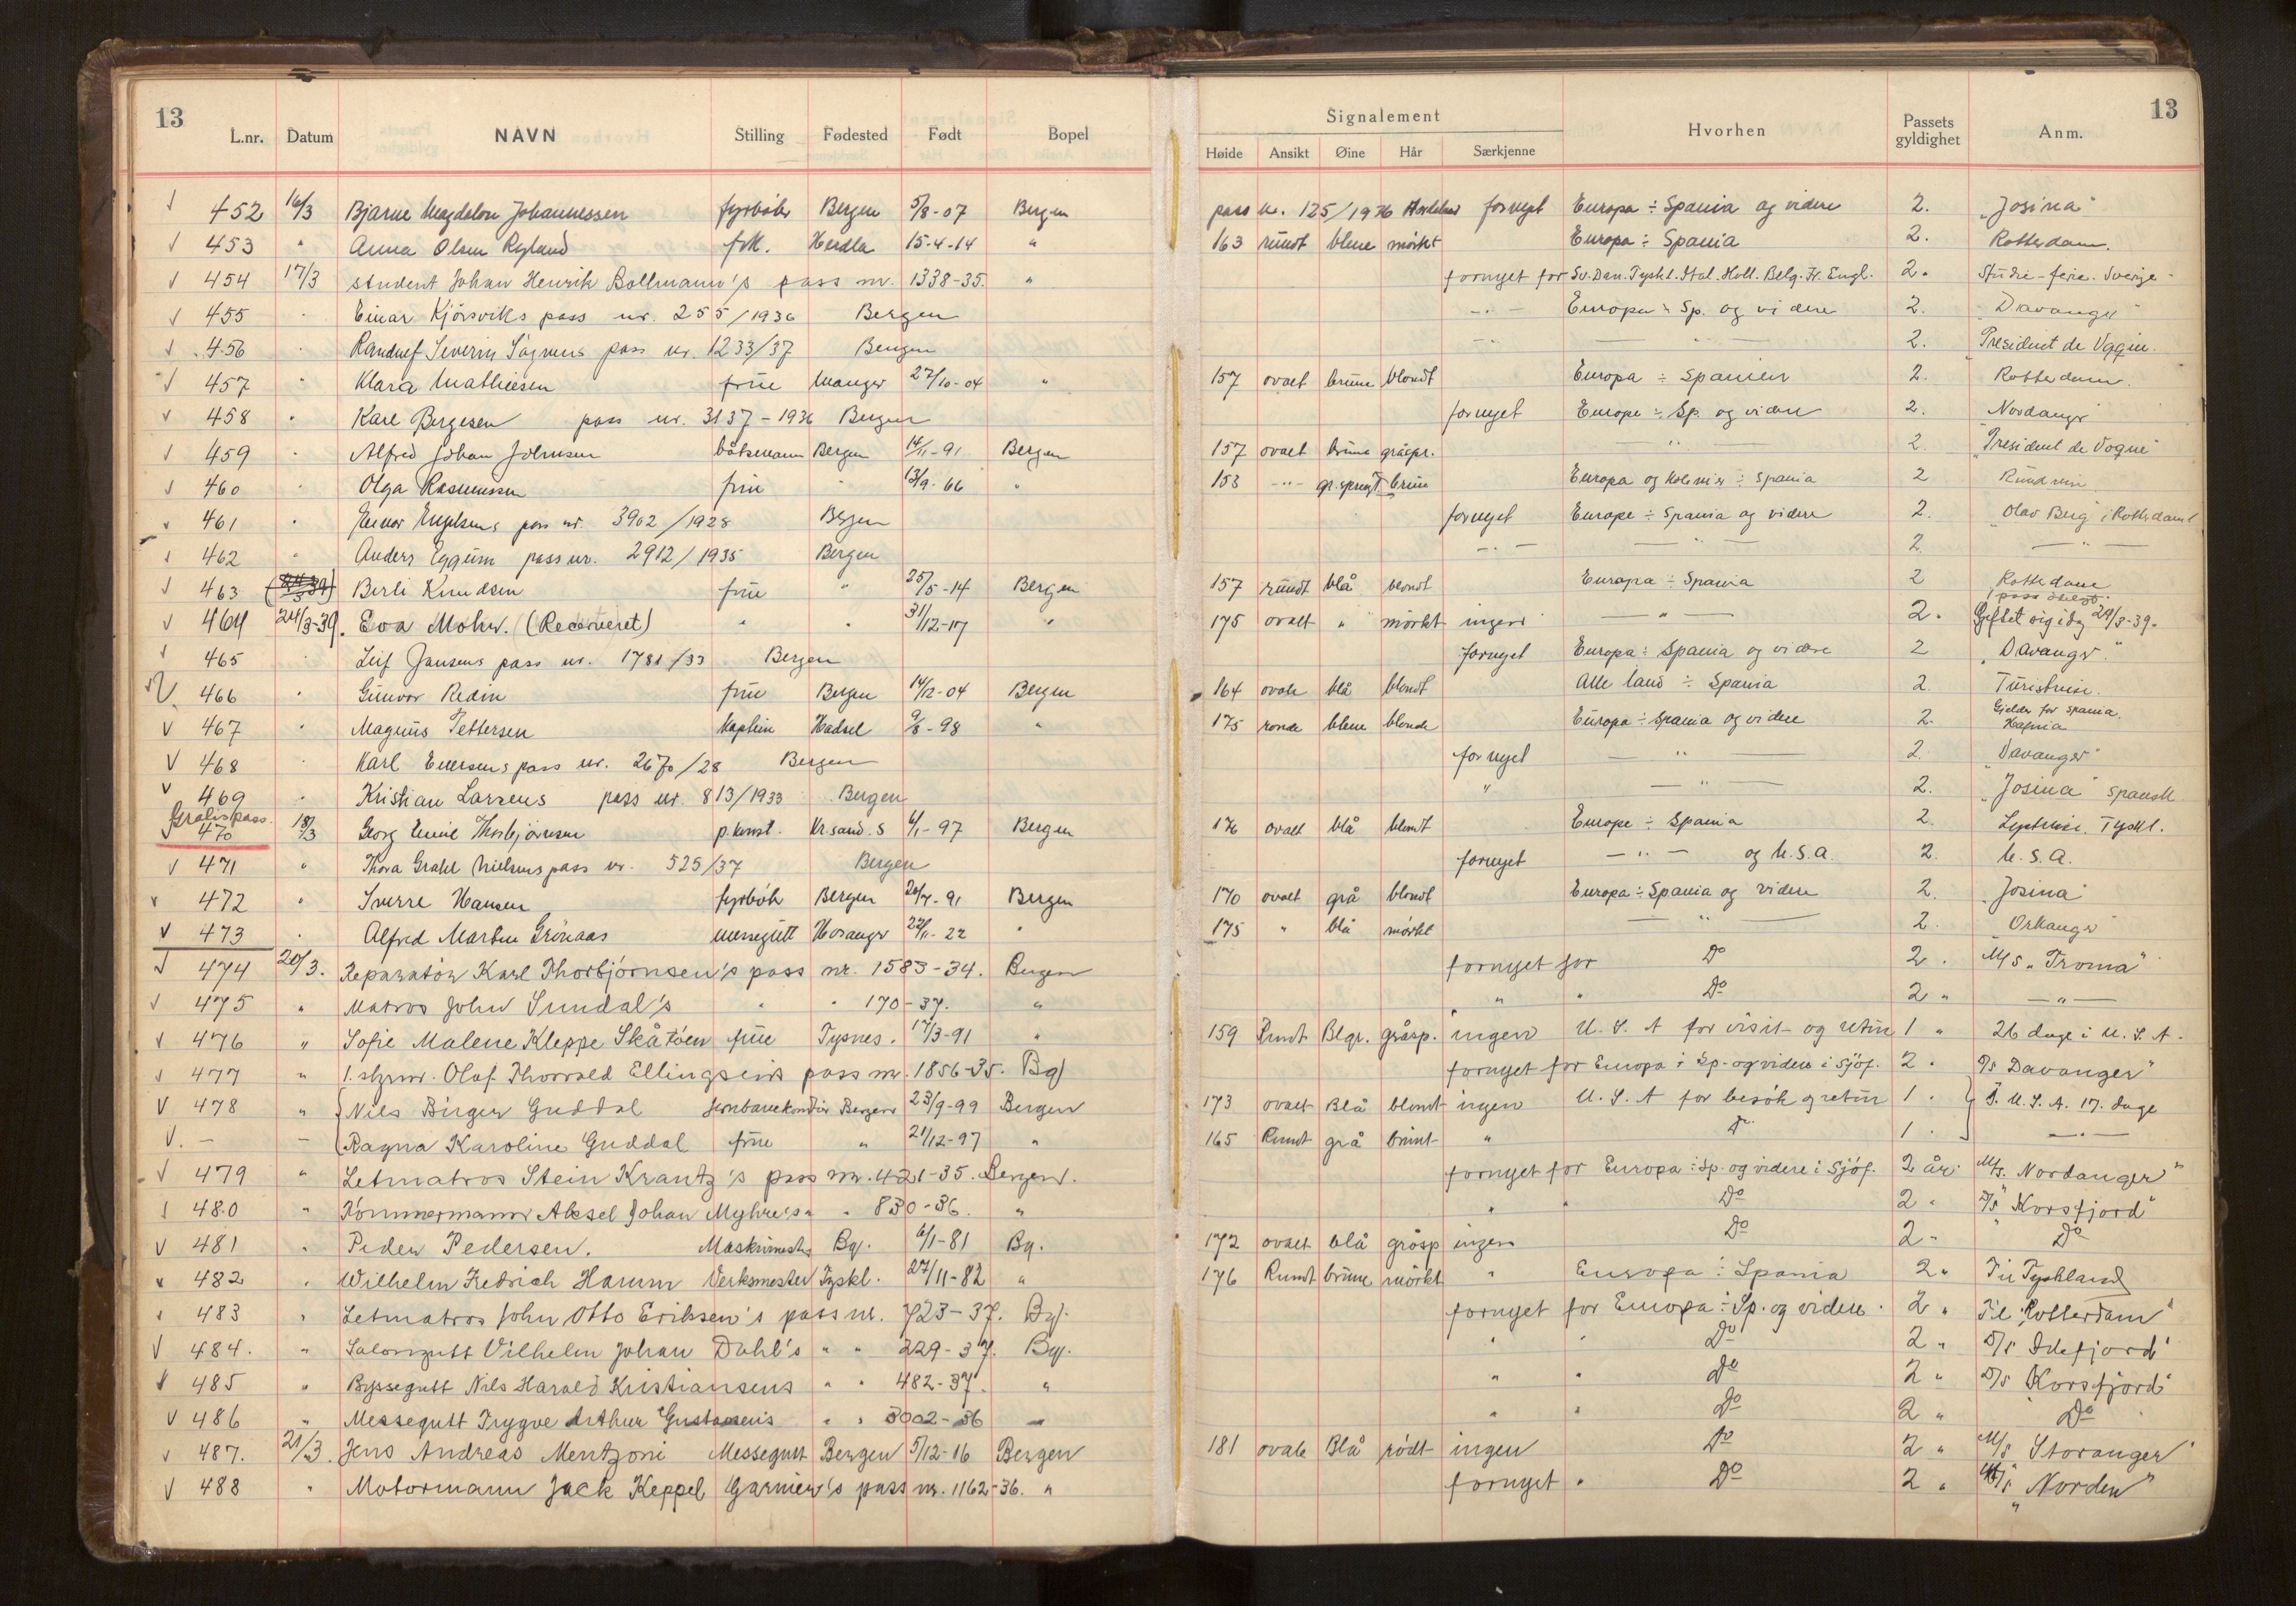 13
L.nr. Datum NAVN Stilling Fødested Født Bopel
Signalement
Høide Ansikt Øine Hår Særkjenne Hvorhen Passets gyldighet Anm.
13
452 16/3 Bjarne Magdalon Johannessen fyrbøter Bergen 5/8-07 Bergen pass nr. 125/1936 fornyet Europa ÷ Spania og videre 2. "Josina"
453 " Anna Olsen Ryland frk. Herdla 15-4-14 " 163 rundt blene mørkt Europa ÷ Spania 2. Rotterdam.
454 17/3 student Johan Henrik Bollmann's pass nr. 1338-35. " fornyet for Sv. Dan. Tyskl. Ital. Holl. Belg. Fr. Engl. 2. Studie-ferie. Sverige
455 " Einar Kjørsviks pass nr. 255/1936 Bergen -"- Europa ÷ Sp. og videre 2. "Davanger"
456 " Severin pass nr. 1233/37 Bergen -"- -"- 2. "President de Vogüe.
457 " Klara Mathiesen frue Manger 27/10-04 " 157 ovalt brune blondt Europa ÷ Spanien 2. Rotterdam.
458 " Karl Bergesen pass nr. 3137-1936 Bergen fornyet Europe ÷ Sp. og videre 2. Nordanger
459 " Alfred Johan Johnsen båtsmann Bergen 14/11-91 Bergen 157 ovalt brune gråspr. -"- 2 "President de Vogüe"
460 " Olga Rasmussen frue " 13/9-66 " 153 -"- gr.sprengt brun Europa og Kolonier ÷ Spania 2
461 " Engelsens pass nr. 3902/1928 Bergen fornyet Europe ÷ Spania og videre 2. "Olav Berg" i Rotterdam
462 " Anders Eggum pass nr. 2912/1935 Bergen -"- -"- 2. -"-
463 Berli Knudsen frue " 25/5-14 Bergen 157 rundt blå blondt Europa ÷ Spania 2 Rotterdam
464 24/3-39. Eva Mohr. (Reserveret) " " 31/12-17 " 175 ovalt " mørkt ingen -"- 2. Giftet sig idag 24/3-39.
465 " Leif Jansens pass nr. 1781/33 Bergen fornyet Europa ÷ Spania og videre 2 "Davanger."
466 " Gunvor Redin frue Bergen 14/12-04 Bergen 164 ovale blå blondt Alle land ÷ Spania 2. Turistreise.
467 " Magnus Pettersen Kaptein Hadsel 9/8-98 " 175 ronde blene blonde Europa ÷ Spania og videre 2. Gjelder for Spania. Hafnia
468 " Karl Evensens pass nr. 2670/28 Bergen fornyet -"- 2. "Davanger"
469 " Kristian Larsens pass nr. 813/1933 Bergen " -"- 2. "Josina" spansk
Gratispass.
470 18/3 Georg Emil Thorbjørnsen p.konst. Kr.sand.S 6/1-97 Bergen 176 ovalt blå blondt Europe ÷ Spania 2. Tyskl.
471 " Thora Grahl Nielsens pass nr. 525/37 Bergen fornyet -"- og U.S.A. 2. U.S.A.
472 " Sverre Hansen fyrbøter Bergen 20/7-91 Bergen 170 ovalt grå blondt Europa ÷ Spania og videre 2. "Josina"
473 " Alfred Martin Grönaas messegutt Hosanger 22/11-22 " 175 " blå mørkt -"- 2. "Orkanger"
474 20/3. Reparatör Karl Thorbjörnsen's pass nr. 1583-34. Bergen fornyet for Do 2. M/s "Troma"
475 " Matros John Sundal's " " 170-37. " " " Do 2 " -"-
476 " Sofie Malene Kleppe Skåtöen frue Tysnes. 17/3-91 " 159 Rundt Blgr. gråsp. ingen U.S.A for visit og retur 1 " 26 dage i U.S.A.
477 " 1. styrm. Olaf Thorvald Ellingsens pass nr. 1856-35. Bg. fornyet for Europa ÷ Sp. og videre i Sjöf. 2. D/s Davanger"
478 " Nils Birger Guddal Bergen 23/9-99 Bergen 173 ovalt Blå blondt ingen U.S.A for besök og retur 1. I U.S.A. 17. dage
- - Ragna Karoline Guddal frue " 21/12-97 " 165 Rundt grå brünt " Do 1. -"-
479 " Letmatros Stein Krantz's pass nr. 421-35. Bergen. fornyet for Europa ÷ Sp. og videre i Sjöf. 2 år. M/s. Nordanger"
480 " Tömmermann Aksel Johan Myhre's " " 830-36. " " " Do 2 " D/s "Korsfjord"
481 " Peder Pedersen. Maskinmester Bg. 6/1-81 Bg. 172 ovalt blå gråsp ingen Do 2 " Do
482 " Wilhelm Fredrich Hamm Verksmester Tyskl. 27/11-82 " 176 Rundt brune mörkt " Europa ÷ Spania 2 " Til Tyskland
483 " Letmatros John Otto Eriksen's pass nr. 723-37. Bg. fornyet for Europa ÷ Sp. og videre. 2 " Til Rotterdam"
484. " Salongutt Vilhelm Johan Dahl's " " 229-37. Bg. " " Do 2 " D/s Idefjord"
485 " Byssegutt Nils Harald Kristiansens " " 482-37. " " " Do 2 " D/s "Korsfjord"
486 " Messegutt Trygve Arthur Gustavsen's " " 3002-36 " " " Do 2 " Do
487. 21/3. Jens Andreas Mentzoni Messegutt Bergen 5/12-16 Bergen 181 ovale Blå rödt ingen Do 2 " M/s Storanger"
488 " Motormann Jack Keppel Garnier's pass nr. 1162-36. " fornyet " Do 2 " M/s "Norden"